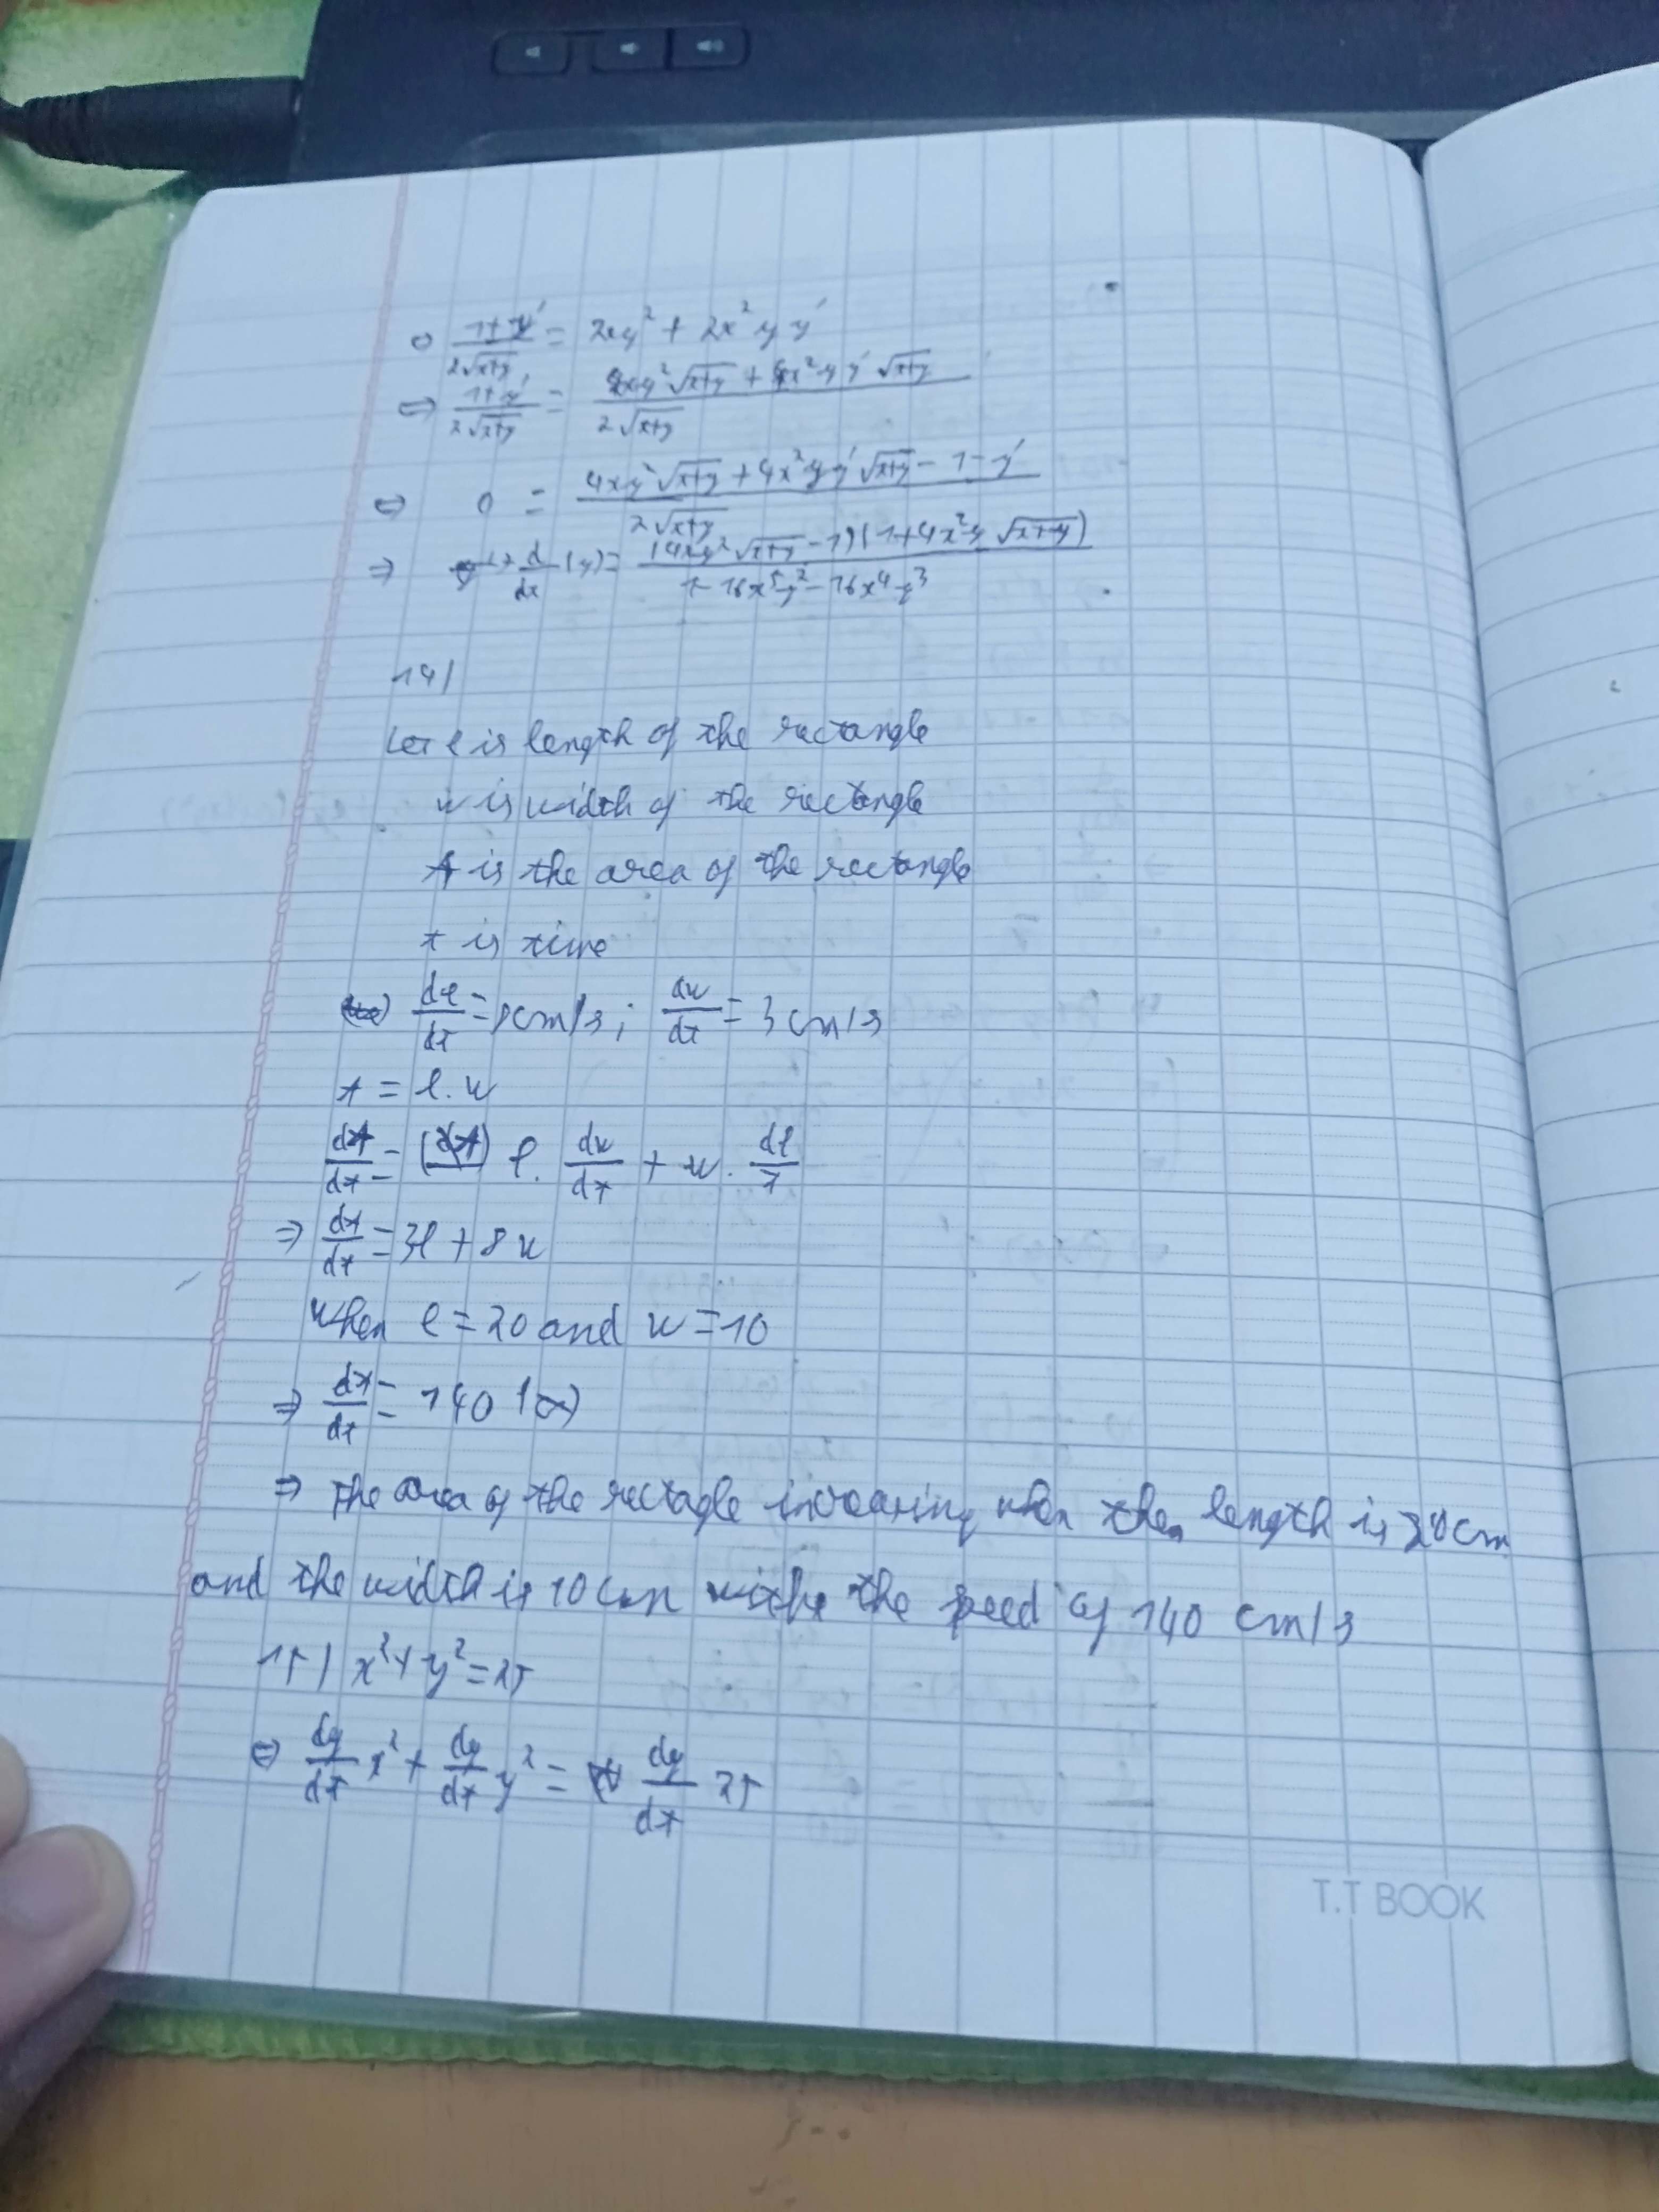 ⇔ (1+y')/(2√(x+y)) = 2xy² + 2x²yy'
⇔ (1+y')/(2√(x+y)) = (4xy²√(x+y) + 4x²yy'√(x+y))/(2√(x+y))
⇔ 0 = (4xy²√(x+y) + 4x²yy'√(x+y) - 1 - y')/(2√(x+y))
⇒ d/dx (y) = ((4xy²√(x+y) - 1)(1+4x²y√(x+y)))/(1 - 16x⁵y² - 16x⁴y³)
14/
Let l is length of the rectangle
w is width of the rectangle
A is the area of the rectangle
t is time
dl/dt = 8cm/s; dw/dt = 3cm/s
A = l.w
dA/dt = l. dw/dt + w. dl/t
⇒ dA/dt = 3l + 8w
When l = 20 and w = 10
⇒ dA/dt = 140
⇒ The area of the rectagle increasing when then length is 20cm
and the width is 10cm with the speed of 140 cm/s
15/ x² + y² = 25
⇔ dy/dt x² + dy/dt y² = dy/dt 25
T.T BOOK